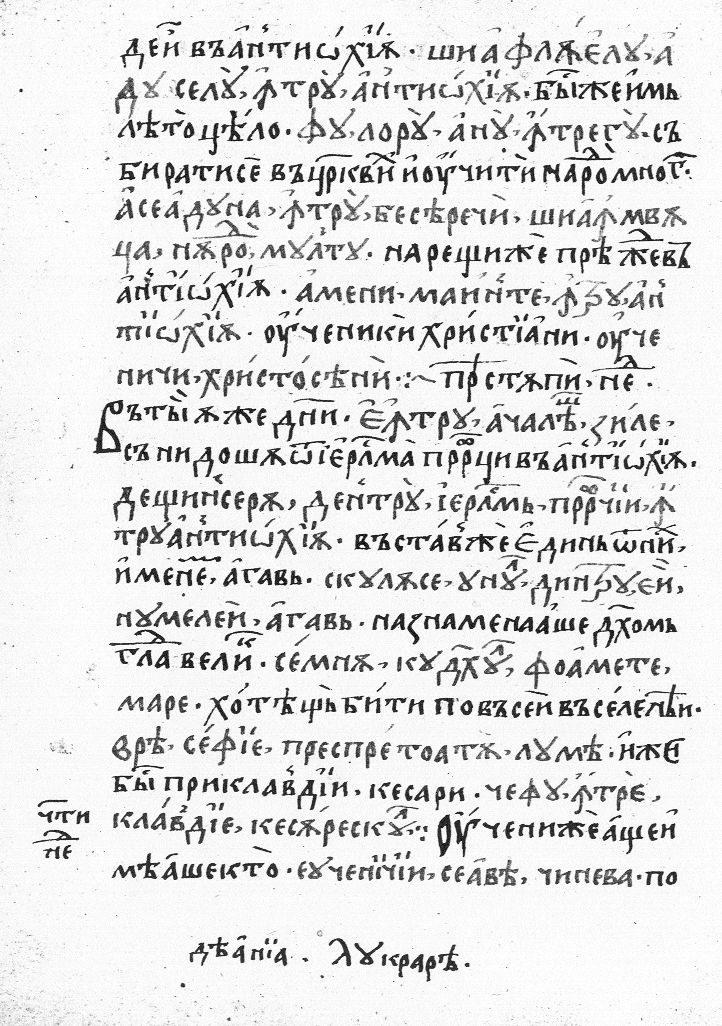 дей въ антиѡхїѧ · ши афлѧелꙋ, а
дꙋ селꙋ, ꙟтрꙋ, антиѡхїѧ · бы̑ же имь
лѣто цѣло · фꙋ, лорꙋ, анꙋ, ꙟтрегꙋ · съ
биратисе въ црⷦ҇ви и ꙋчити нарѡⷣ мног ·
а се адꙋна, ꙟтрꙋ, бесѣречи, ши аꙟмвѧ
ца, нѧроⷣ, мꙋлтꙋ · нарещи же прѣжⷣе въ
антїѡхїѧ · амени, маинте, ꙟтрꙋ, ан
тїѡхїѧ · ꙋченики христїани · ꙋче
ничи, христосѣни · прⷭ҇тѧпи, неⷣ ·
Въ тыѧ же дн҃и · Е ꙟтрꙋ, ачалѣ, зиле,
сънидошѧ ѿ іерⷭ҇лма прⷪ҇рци въ антїѡхїѧ ·
дещинсерѧ, дентрꙋ, іерⷭ҇лмь, прⷪ҇рчїи, ꙟ
трꙋ антиѡхїѧ · въставже единь ѿ ни̑х,
именеⷨ, агавь · скꙋлѧсе, ꙋнꙋⷧ, динтрꙋ еи,
нꙋмелеи, агавь · назнаменааше дх҃омь
глаⷣ велиⷦ · семнѧ, кꙋ дх҃ꙋⷧ, фоамете,
маре · хотѣщь бити по въсеи въселенѣи ·
врѣ, сефїе, преспре тоатѧ, лꙋмѣ · иже
бы̑ при клавдїи, кесари · че фꙋ, ꙟтре,
клавдїе, кесѧрескꙋⷧ ·: Ꙋчениⷦ же аще и
чⷭ҇ти
неⷣ
мѣаше кто · е ꙋченїчїи, се авѣ, чинева · по
дѣанїа · лꙋкрарѣ ·